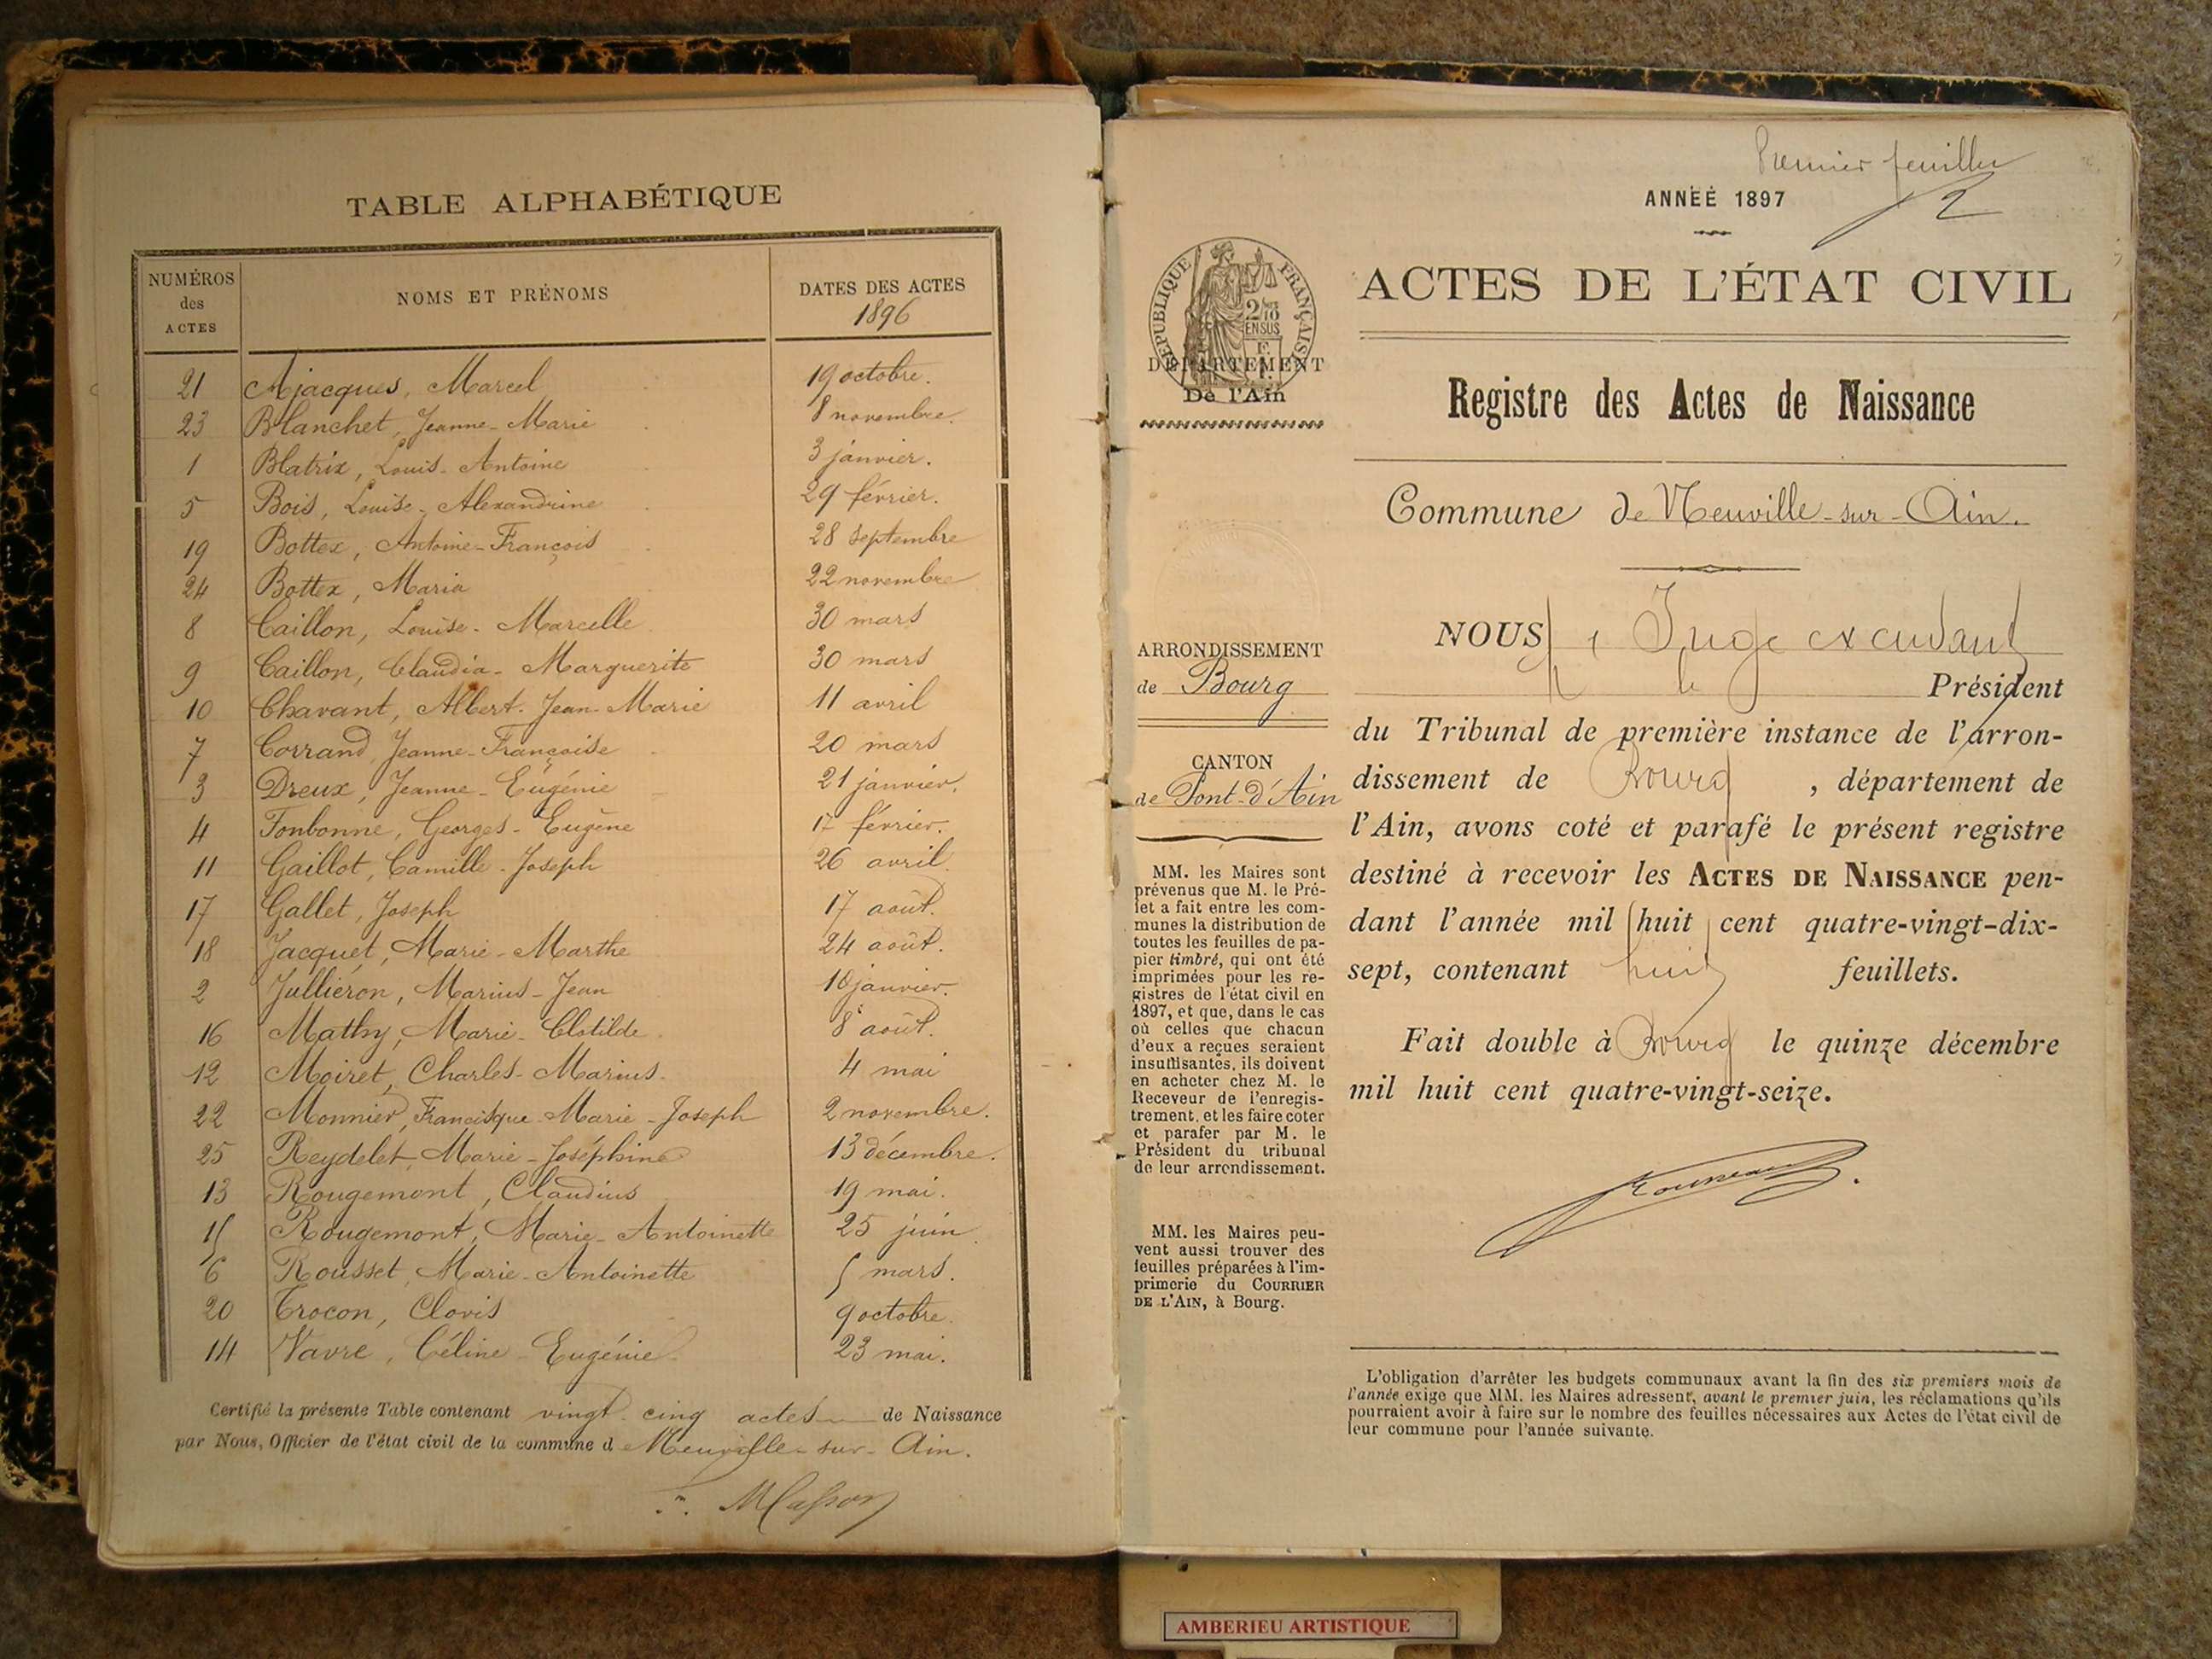 TABLE ALPHABÉTIQUE
NUMÉROS des ACTES
NOMS ET PRÉNOMS
DATES DES ACTES
1896
21 Ajacques, Marcel 19 octobre.
23 Blanchet, Jeanne-Marie 8 novembre.
1 Blatrix, Louis-Antoine 3 janvier.
5 Bois, Louise-Alexandrine 29 février.
19 Bottex, Antoine-François 28 septembre
24 Bottex, Maria 22 novembre
8 Caillon, Louise-Marcelle 30 mars
9 Caillon, Claudia-Marguerite 30 mars
10 Chavant, Albert-Jean-Marie 11 avril
7 Corrand, Jeanne-Françoise 20 mars
3 Dreux, Jeanne-Eugénie 21 janvier.
4 Fonbonne, Georges-Eugène 17 février.
11 Gaillot, Camille-Joseph 26 avril.
17 Gallet, Joseph 17 août.
18 Jacquet, Marie-Marthe 24 août.
2 Julliéron, Marius-Jean janvier.
16 Mathy, Marie-Clotilde 8 août.
12 Moiret, Charles-Marius 4 mai
22 Monnier, Francisque-Marie-Joseph 2 novembre.
25 Reydelet, Marie-Joséphine 13 décembre.
13 Rougemont, Claudius 19 mai.
15 Rougemont, Marie-Antoinette 25 juin.
6 Rousset, Marie-Antoinette 5 mars.
20 Trocon, Clovis 9 octobre.
14 Vavre, Céline-Eugénie 23 mai.
Certifié la présente Table contenant vingt-cinq actes de Naissance
par Nous, Officier de l'état civil de la commune d Neuville-sur-Ain.
Masson
Premier feuillet
ANNÉE 1897
RÉPUBLIQUE FRANÇAISE
DÉPARTEMENT
De l'Ain
ACTES DE L'ÉTAT CIVIL
Registre des Actes de Naissance
Commune de Neuville-sur-Ain.
ARRONDISSEMENT
de Bourg
CANTON
de Pont-d'Ain
MM. les Maires sont
prévenus que M. le Pré-
fet a fait entre les com-
munes la distribution de
toutes les feuilles de pa-
pier timbré, qui ont été
imprimées pour les re-
gistres de l'état civil en
1897, et que, dans le cas
où celles que chacun
d'eux a reçues seraient
insuffisantes, ils doivent
en acheter chez M. le
Receveur de l'enregis-
trement, et les faire coter
et parafer par M. le
Président du tribunal
de leur arrondissement.
MM. les Maires peu-
vent aussi trouver des
feuilles préparées à l'im-
primerie du COURRIER
DE L'AIN, à Bourg.
NOUS Juge
le Président
du Tribunal de première instance de l'arron-
dissement de Bourg, département de
l'Ain, avons coté et parafé le présent registre
destiné à recevoir les ACTES DE NAISSANCE pen-
dant l'année mil huit cent quatre-vingt-dix-
sept, contenant huit feuillets.
Fait double à Bourg le quinze décembre
mil huit cent quatre-vingt-seize.
L'obligation d'arrêter les budgets communaux avant la fin des six premiers mois de
l'année exige que MM. les Maires adressent, avant le premier juin, les réclamations qu'ils
pourraient avoir à faire sur le nombre des feuilles nécessaires aux Actes de l'état civil de
leur commune pour l'année suivante.
AMBERIEU ARTISTIQUE